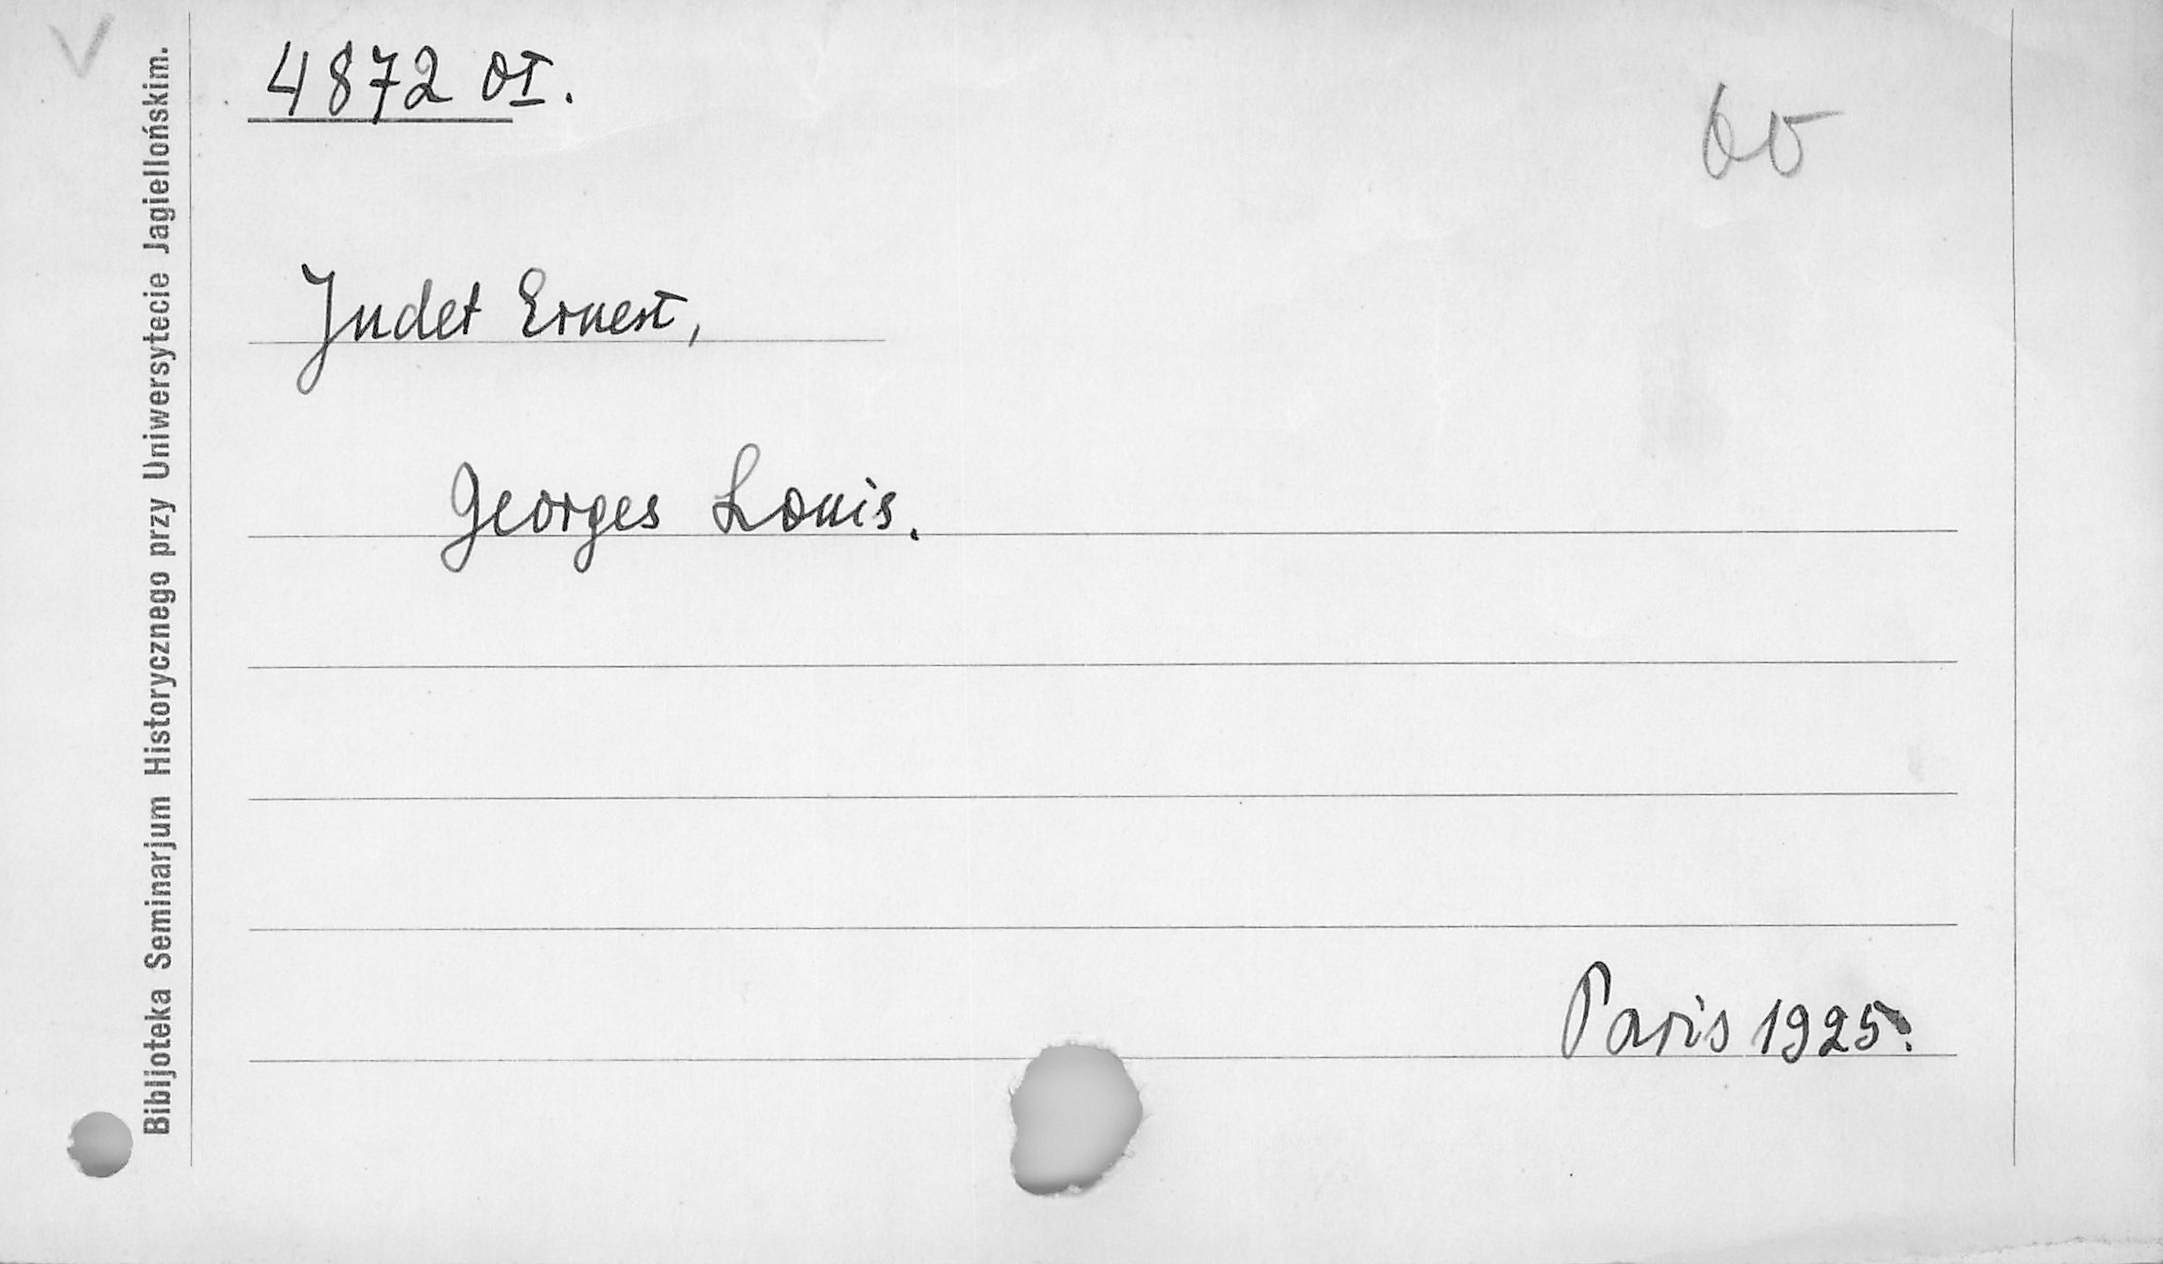 4872 OI.
60
Judet Ernest,
Georges Louis.
Paris 1925.
Bibljoteka Seminarjum Historycznego przy Uniwersytecie Jagiellońskim.